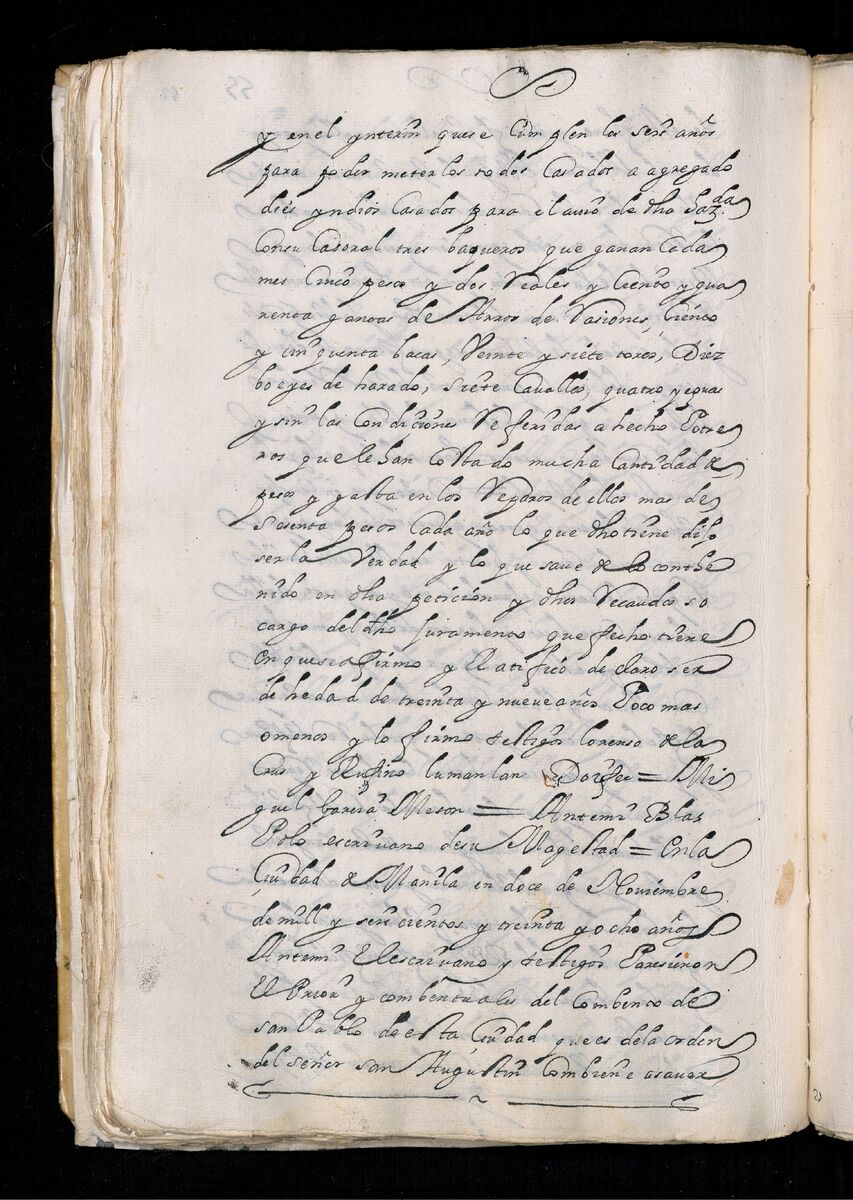 y en el ynterin que se Cumplen los seis años
para poder meterlos todos Casados a agregado
dies yndios Casados para el avio de dha haz.da
Con su Caporal tres baqueros que ganan Cada
mes Cinco pesos y dos Reales y Ciento y qua
renta gantas de Arros de Rasiones, Ciento
y cinquenta bacas, Veinte y siete toros, Diez
boeyes de harado, siete Cavallos, quatro yeguas
y sin las Condiciones Referidas a hecho Potre
ros que le han Costado mucha Cantidad de
pesos y gasta en los Reparos de ellos mas de
sesenta pesos Cada año lo que dho tiene dijo
ser la Verdad y lo que save de lo conthe
nido en dha peticion y dhos Recaudos so
cargo del dho Juramento que fecho tiene
en que se afirmo y Ratificó declaro ser
de hedad de treinta y nueve años Poco mas
omenos y lo firmo testigos Lorenso de la
Crus y Rufino lumanlan = Mi
guel Garcia = Antemi Blas
Polo escrivano de su Magestad = En la
Ciudad de Manila en doce de Noviembre
de mill y seis cientos y treinta y ocho años
Antemi El escrivano y testigos Paresieron
El Prior y combentuales del Combento de
san Pablo de esta Ciudad que es de la orden
del señor san Augustin Combiene asaver